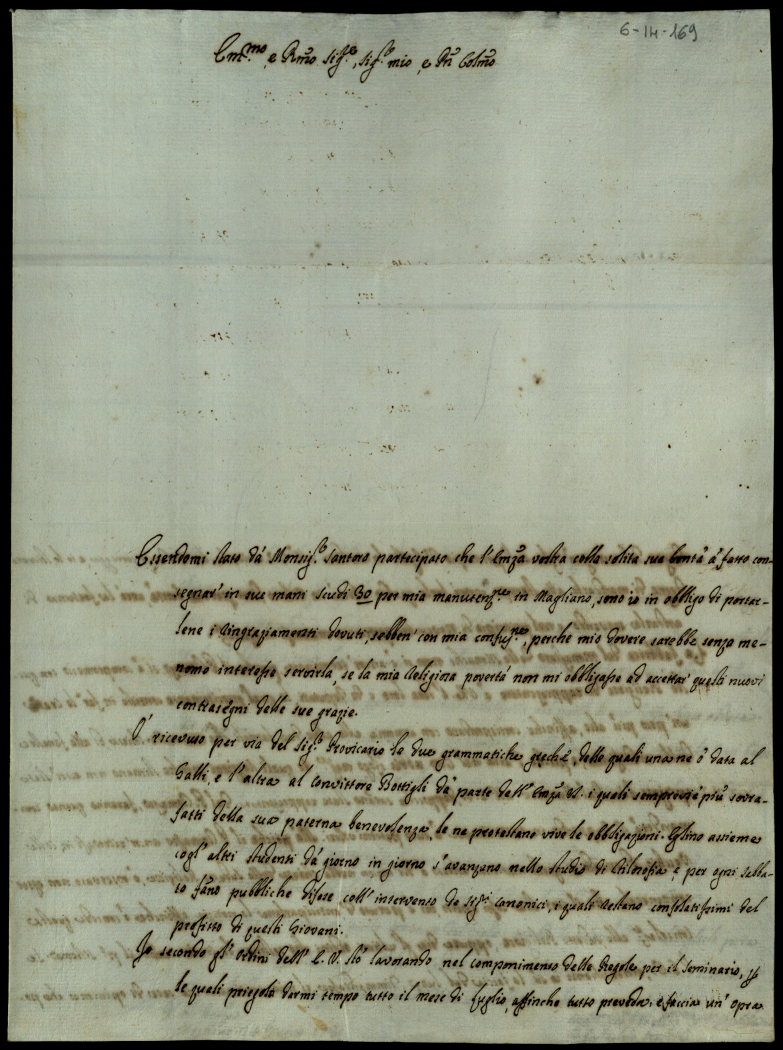 6-14-169
Em.mo, e Rmo Sig.e, Sig.r mio, e Pñ Colmo
Essendomi stato dà Monsig.r Santoro partecipato che l'Emza vostra colla solita sua bontà à fatto con-
segnar' in sue mani scudi 30 per mia manutenz.ne in Magliano, sono io in obbligo di portar-
lene i ringraziamenti dovuti, sebben' con mia confus.ne, perche mio dovere sarebbe senza me-
nomo interesse servirla, se la mia Religiosa povertà non mi obbligasse ad accettar' questi nuovi
contrasegni delle sue grazie.
O' ricevuto per via del Sig.r Provicario le due grammatiche greche, delle quali una ne ò data al
Galli, e l'altra al Convittore Bottigli dà parte dell'Emza V. i quali semprevie più sovra-
fatti della sua paterna benevolenza, le ne protestano vive le obbligazioni. Eglino assieme
cogl'altri studenti dà giorno in giorno s'avanzano nello studio di Filosofia e per ogni sabba-
to fanno pubbliche difese coll'intervento de Sig.ri Canonici, i quali restano consolatissimi del
profitto di questi Giovani.
Io secondo gl'Ordini dell'E. V. stò lavorando nel componimento delle Regole per il Seminario, p
le quali priegola darmi tempo tutto il mese di luglio, affinche tutto preveda, e faccia un'opra